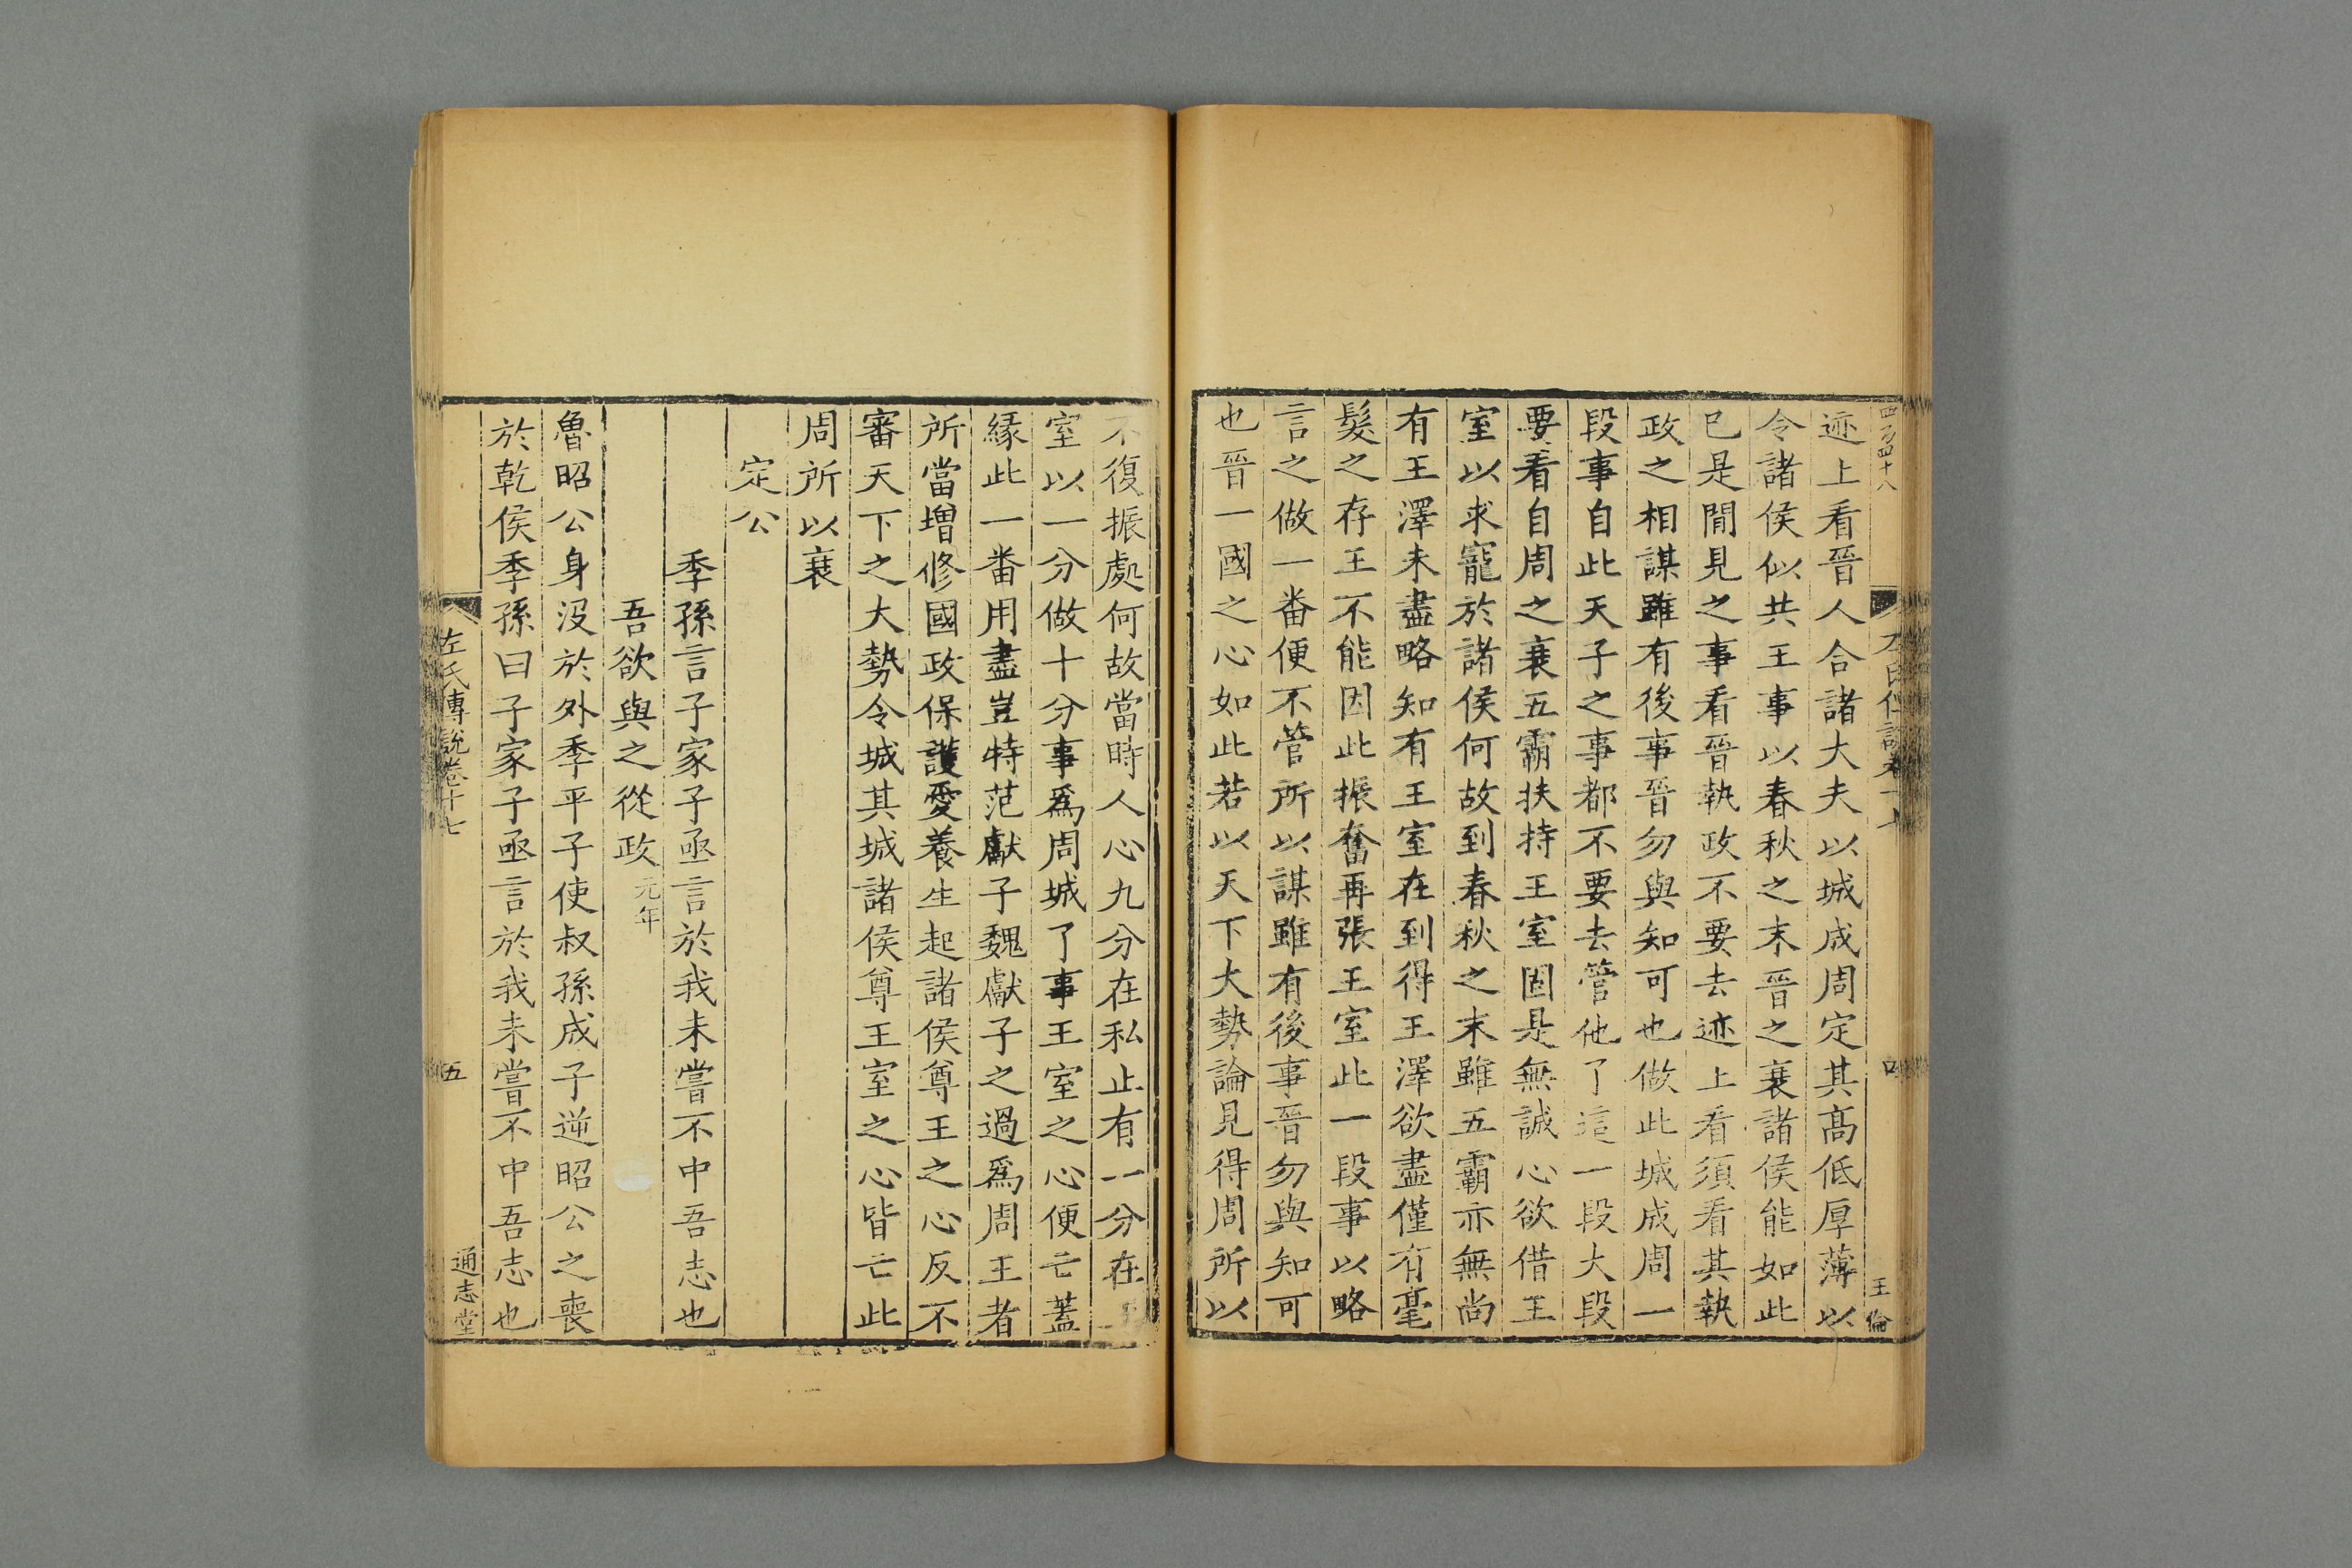 四百四十八
王倫
迹上看晉人合諸大夫以城成周定其髙低厚薄以
令諸侯似共王事以春秋之末晉之衰諸侯能如此
已是閒見之事看晉執政不要去迹上看須看其執
政之相謀雖有後事晉勿與知可也做此城成周一
段事自此天子之事都不要去管他了這一段大段
要看自周之衰五霸扶持王室固是無誠心欲借王
室以求寵於諸侯何故到春秋之末雖五霸亦無尚
有王澤未盡略知有王室在到得王澤欲盡僅有毫
髮之存王不能因此振奮再張王室此一段事以略
言之做一番便不管所以謀雖有後事晉勿與知可
也晉一國之心如此若以天下大勢論見得周所以
不復振處何故當時人心九分在私止有一分在
室以一分做十分事爲周城了事王室之心便亡蓋
緣此一番用盡豈特范獻子魏獻子之過爲周王者
所當增修國政保護愛養生起諸侯尊王之心反不
審天下之大勢令城其城諸侯尊王室之心皆亡此
周所以衰
定公
季孫言子家子亟言於我未嘗不中吾志也
吾欲與之從政元年
魯昭公身沒於外季平子使叔孫成子逆昭公之喪
於乾侯季孫曰子家子亟言於我未嘗不中吾志也
左氏傳說卷十七
五
通志堂